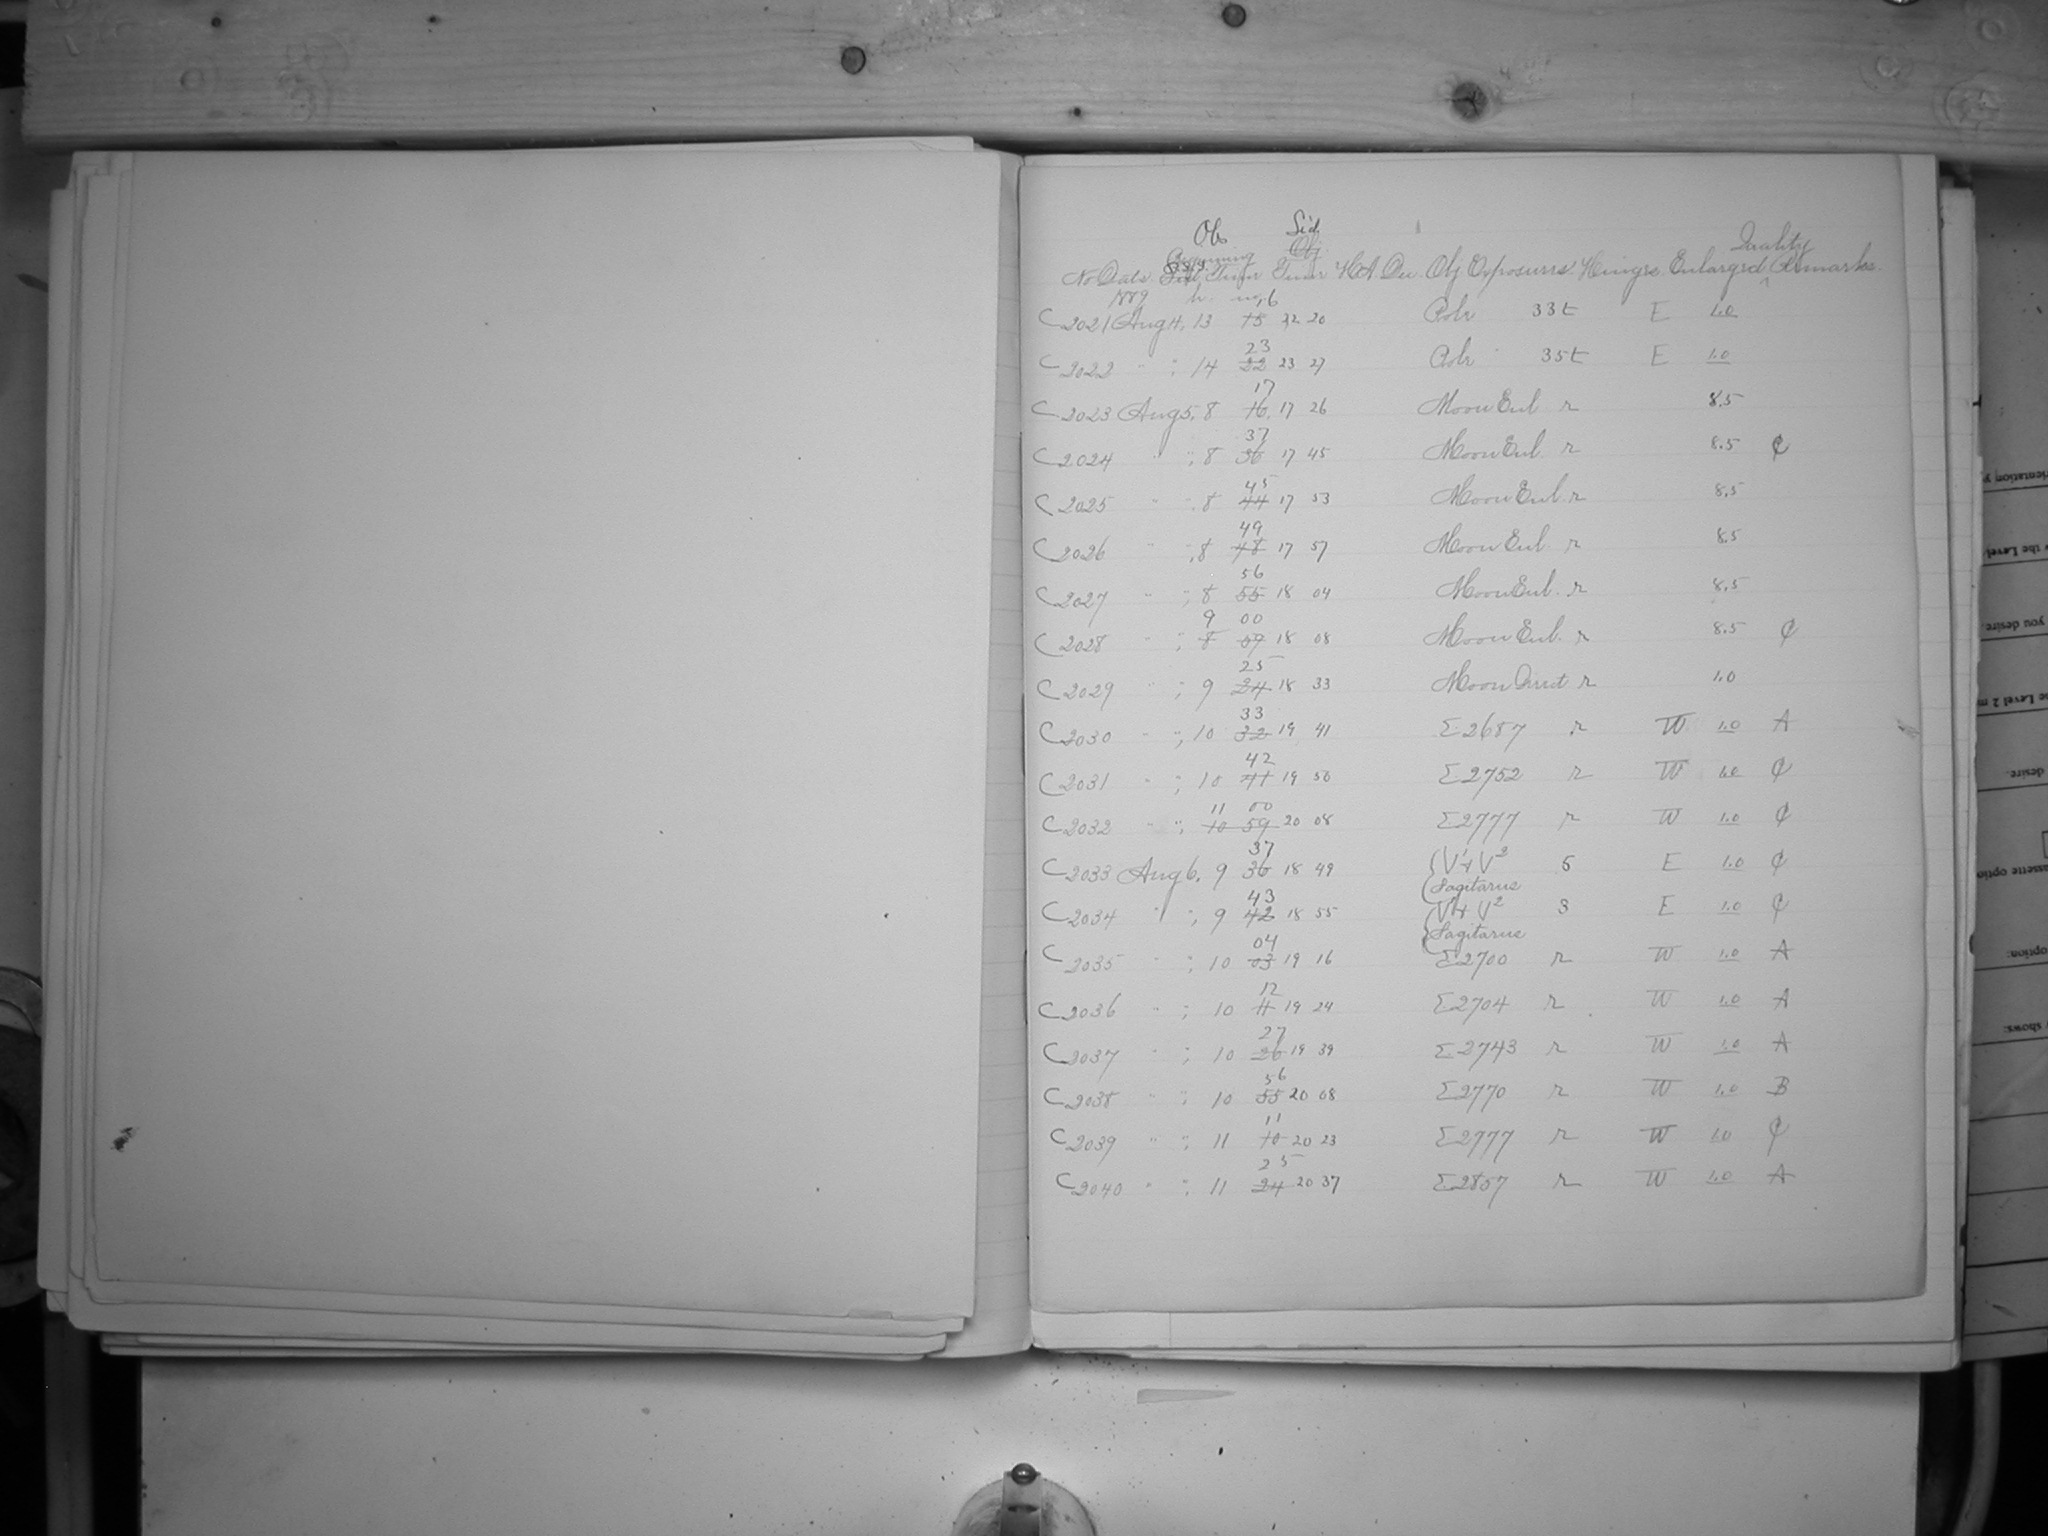 Obs Sid.
Quality
Beginning Obj.
No Date Sid. Time Time HA Dec. Obj Exposures Hinge Enlarged Remarks.
1889 h. m.
C 2021 Aug 4, 13 16 15 22 20 Polr 33t E 1.0
C 2022 " " ; 14 23 22 23 27 Polr 35t E 1.0
C 2023 Aug 5, 8 17 16 17 26 Moon Enl r 8.5
C 2024 " " ; 8 37 36 17 45 Moon Enl. r 8.5 C
C 2025 " " 8 45 44 17 53 Moon Enl r 8.5
C 2026 " " ; 8 49 48 17 57 Moon Enl. r 8.5
C 2027 " " ; 8 56 55 18 04 Moon Enl. r 8.5
C 2028 " " ; 9 00 8 59 18 08 Moon Enl. r 8.5 C
C 2029 " " ; 9 25 24 18 33 Moon Direct r 1.0
C 2030 " " ; 10 33 32 19 41 Σ 2687 r W 1.0 A
C 2031 " " ; 10 42 41 19 50 Σ 2752 r W 1.0 C
C 2032 " " ; 11 00 10 59 20 08 Σ 2777 r W 1.0 C
C 2033 Aug 6, 9 37 36 18 49 V¹+V² 5 E 1.0 C
Sagitarius
C 2034 " " ; 9 43 42 18 55 V¹+V² 3 E 1.0 C
Sagitarius
C 2035 " " ; 10 04 03 19 16 Σ 2700 r W 1.0 A
C 2036 " " ; 10 12 11 19 24 Σ 2704 r W 1.0 A
C 2037 " " ; 10 27 26 19 39 Σ 2743 r W 1.0 A
C 2038 " " ; 10 56 55 20 08 Σ 2770 r W 1.0 B
C 2039 " " ; 11 11 10 20 23 Σ 2777 r W 1.0 C
C 2040 " " ; 11 25 24 20 37 Σ 2857 r W 1.0 A